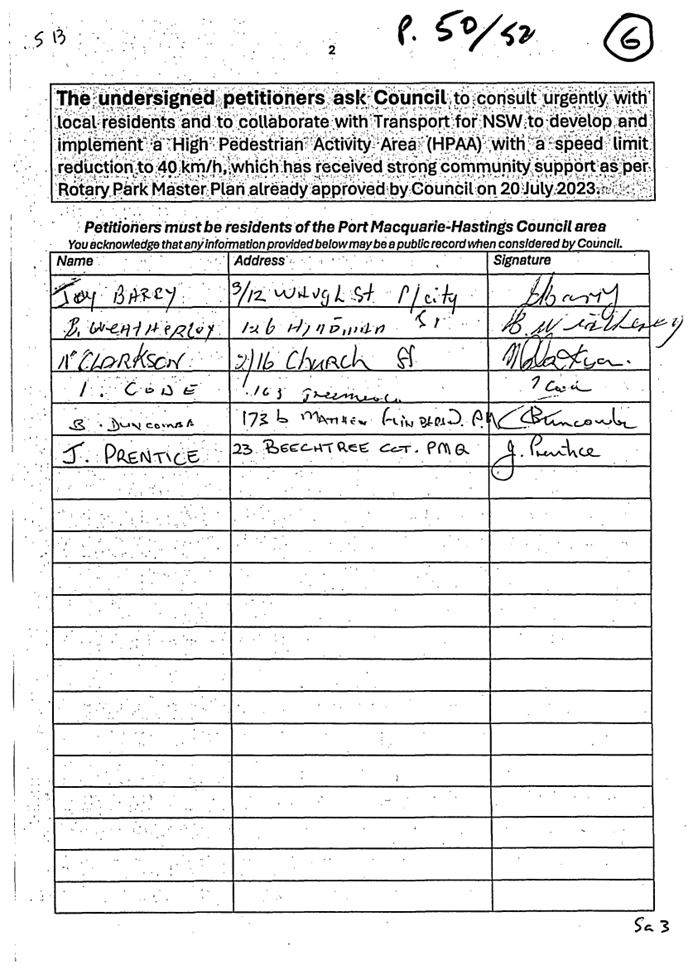 S B
P. 50/52
6
2
The undersigned petitioners ask Council to consult urgently with
local residents and to collaborate with Transport for NSW to develop and
implement a High Pedestrian Activity Area (HPAA) with a speed limit
reduction to 40 km/h, which has received strong community support as per
Rotary Park Master Plan already approved by Council on 20 July 2023.
Petitioners must be residents of the Port Macquarie-Hastings Council area
You acknowledge that any information provided below may be a public record when considered by Council.
Name Address Signature
JOY BARRY 3/12 WAUGH St P/city JBarry
B. WEATHERLEY 126 HINDMAN St B. Weatherley
N CLARKSON 2/16 Church St
I. CODE 163 I Code
B. DUNCOMBE 173 b MATTHEW FLINDERS D. PM BDuncombe
J. PRENTICE 23 BEECHTREE CCT. PMQ J. Prentice
Sa 3